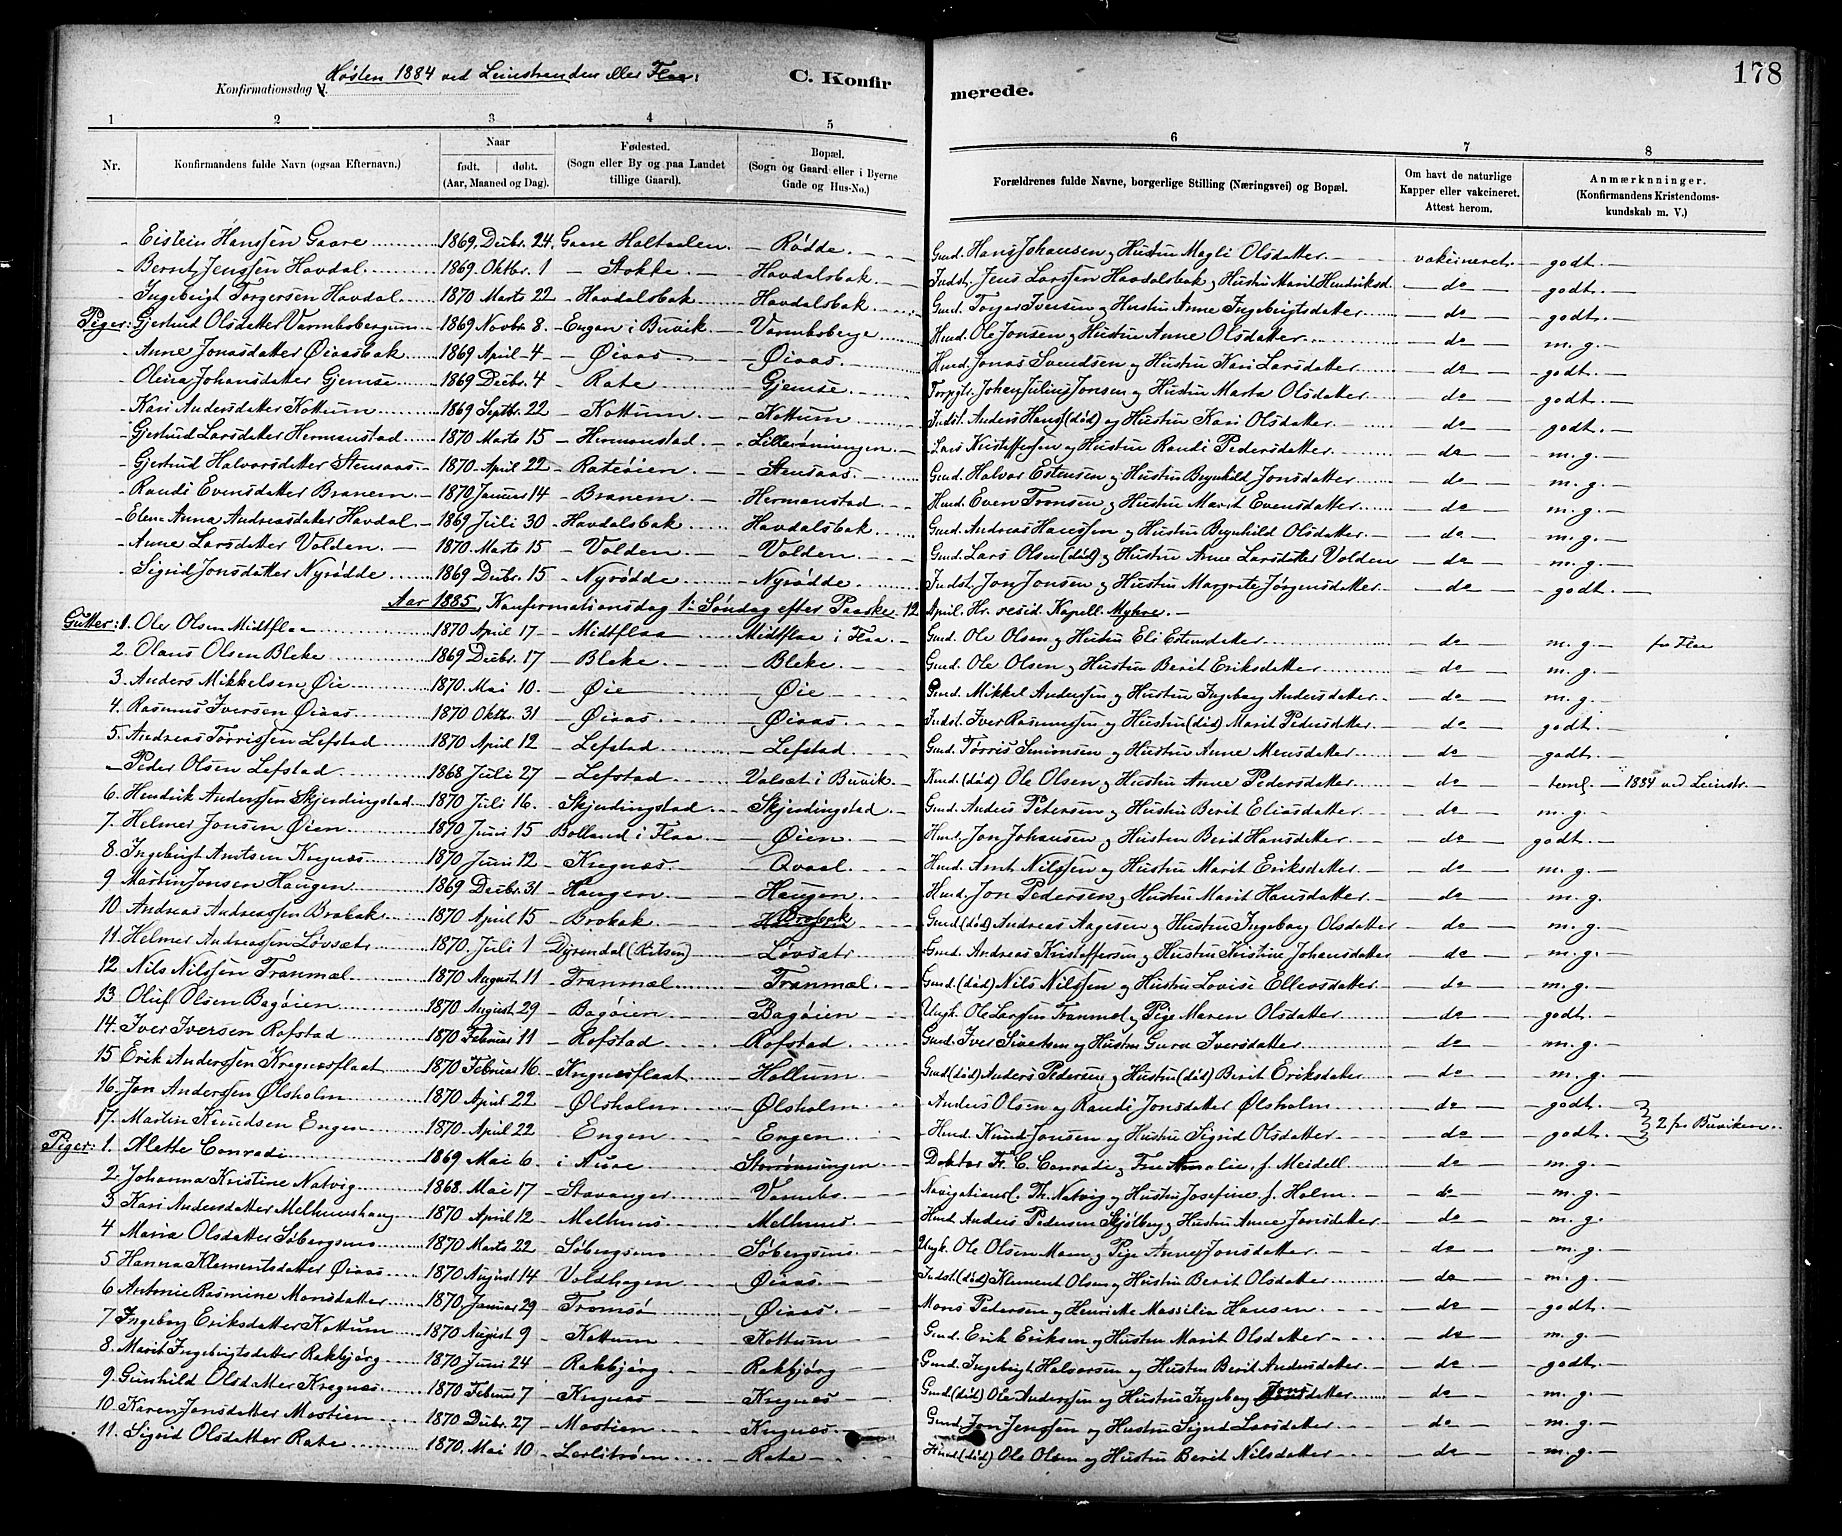 Konfirmationsdag d. Høsten 1884 ved Leinstranden eller Flaa:
C. Konfirmerede.
178
1 2 3 4 5 6 7 8
Nr. Konfirmandens fulde Navn (ogsaa Efternavn.) Naar født. døbt. (Aar, Maaned og Dag). Fødested. (Sogn eller By og paa Landet tillige Gaard). Bopæl. (Sogn og Gaard eller i Byerne Gade og Hus-No.) Forældrenes fulde Navne, borgerlige Stilling (Næringsvei) og Bopæl. Om havt de naturlige Kapper eller vakcineret. Attest herom. Anmærknninger. (Konfirmandens Kristendomskundskab m. V.)
- Eistein Hanssen Gaare 1869. Decbr. 24 - Gaare Holtaalen. - Rødde. - Gmd. Hans Johansen og Hustru Magli Olsdatter vakcineret. - godt. -
- Bernt Jenssen Havdal 1869. Oktbr. 1 - Stokke. - Havdalsbak - Indst. Jens Larssen Havdalsbak og Hustru Marit Henriksd. - do - godt. -
- Ingebrigt Torgersen Havdal 1870. Marts 22 - Havdalsbak - Havdalsbak. - Gmd. Torger Iversen og Hustru Anne Ingebrigtsdatter - do - godt. -
Piger: Gjertrud Olsdatter Varmbobergum 1869. Novbr. 8. - Engan i Buvik. - Varmboberge Hmd. Ole Jonsen og Hustru Anne Olsdatter - do - m. g. -
- Anne Jonasdatter Øiaasbak 1869 April 4 - Øiaas - Øiaas. - Hmd. Jonas Svendsen og Hustru Kari Larsdatter - do - godt. -
- Olina Johansdatter Gjemse 1869. Decbr. 4 - Rate - Gjemse. - Torpgtr. Johan Julius Jonsen og Hustru Marta Olsdatter - do - godt. -
- Kari Andersdatter Kottum 1869. Septbr. 22 - Kottum. - Kottum - Indst. Anders Hans. (død) og Hustru Kari Olsdatter - do - godt. -
- Gjertrud Larsdatter Hermanstad 1870. Marts 15 - Hermanstad. - Lillerønningen - Lars Kristoffersen og Hustru Randi Pedersdatter - do - m. g. -
- Gjertrud Halvorsdatter Stensaas 1870. April 22 - Rateøien - Stensaas - Gmd. Halvor Estensen og Hustru Brynhild Jonsdatter - do - m. g. -
- Randi Evensdatter Branem 1870. Januar 14 - Branem - Hermanstad Hmd. Even Tronsen og Hustru Marit Evensdatter - do - m. g. -
- Elen Anna Andreasdatter Havdal. - 1869 Juli 30 - Havdalsbak Havdalsbak. Gmd. Andreas Hanssen og Hustru Brynhild Olsdatter - do - m. g. -
- Anne Larsdatter Volden. - 1870. Marts 15 - Volden. - Volden. - Gmd. Lars Olsen (død) og Hustru Anne Larsdatter Volden - do - m. g. -
- Sigrid Jonsdatter Nyrødde 1869 Decbr. 15 - Nyrødde - Nyrødde. - Indst. Jon Jonsen og Hustru Margrete Jørgensdatter - do - godt. -
Aar 1885, Konfirmationsdag 1. Søndag efter Paaske 12 April. Hr. resid. Kapell. Myhre. -
Gutter: 1. Ole Olsen Midtflaa 1870 April 17 - Midtflaa Midtflaa i Flaa. - Gmd. Ole Olsen og Hustru Eli Estensdatter - do - m. g. - fra Flaa
2. Olaus Olsen Bleke 1869. Decbr. 17 - Bleke - Bleke. - Gmd. Ole Olsen og Hustru Berit Eriksdatter - do - m. g. -
3. Anders Mikkelsen Øie 1870. Mai 10. - Øie - Øie - Gmd. Mikkel Anderssen og Hustru Ingeborg Andersdatter - do - m. g. -
4. Rasmus Iversen Øiaas 1870. Oktbr. 31 - Øiaas - Øiaas - Indst. Iver Rasmussen og Hustru (død) Marit Pedersdatter - do - godt -
5. Andreas Tørrissen Lefstad 1870. April 12 - Lefstad - Lefstad - Gmd. Tørris Simonsen og Hustru Anne Monsdatter - do - godt. -
- Peder Olsen Lefstad 1868 Juli 27 - Lefstad. - Valset i Buvik - Kmd. (død) Ole Olsen og Hustru Anne Pedersdatter - do - teml. - 1884 ved Leinstr. -
6. Hendrik Anderssen Skjerdingstad 1870 Juli 16. - Skjerdingstad - Skjerdingstad - Gmd. Anders Petersen og Hustru Berit Eliasdatter - do - m. g. -
7. Helmer Jonsen Øien 1870. Juni 15 - Bolland i Flaa - Øien - Hmd. Jon Johansen og Hustru Berit Hansdatter - do - godt. -
8. Ingebrigt Arntsen Kregnæs 1870. Juni 12 - Kregnæs. - Qvaal - Hmd. Arnt Nilssen og Hustru Marit Eriksdatter - do - m. g. -
9. Martin Jonsen Haugen 1869 Decbr. 31 - Haugen - Haugen - Hmd. Jon Pedersen og Hustru Marit Hansdatter - do - m. g.
10. Andreas Andreassen Brobak 1870. April 15 - Brobak - Brobak Gmd. (død) Andreas Aagesen og Hustru Ingeborg Olsdatter - do - m. g. -
11. Helmer Andreassen Løvsæt 1870. Juli 1 Dyrendal (Rissen) - Løvsæt - Gmd. Andreas Kristoffersen og Hustru Kristine Johansdatter - do - m. g. -
12. Nils Nilssen Tranmæl 1870. August 11 - Tranmæl - Tranmæl - Gmd. (død) Nils Nilssen og Hustru Lovise Ellensdatter - do - m. g. -
13. Oluf Olsen Bagøien 1870 August 29 - Bagøien - Bagøien - Ungk. Ole Larssen Tranmæl og Pige Maren Olsdatter - do - godt. -
14. Iver Iversen Rofstad 1870 Februar 11 - Rofstad. - Rofstad. - Gmd. Iver Sivertsen og Hustru Guru Iversdatter - do - m. g. -
15. Erik Anderssen Kregnæsflaat 1870 Februar 16 - Kregnæsflaat - Hollum - Gmd (død) Anders Pedersen og Hustru (død) Berit Eriksdatter - do - m. g. -
16. Jon Anderssen Ølsholm 1870 April 22 - Ølsholm - Ølsholm - Anders Olsen og Randi Jonsdatter Ølsholm - do - godt. -
17. Martin Knudsen Engen 1870. April 22 - Engen - Engen - Hmd. Knud Jonsen og Hustru Sigrid Olsdatter - do - godt. - 2 fra Buviken.
Piger: 1. Alette Conradi 1869 Mai 6. - i Aure - Storrønningen - Doktor Fr. C. Conradi og Fru Amalie, f. Meidell. - do - m. g. -
2. Johanna Kristine Natvig 1868. Mai 17 - Stavanger - Varmbo. - Navigationsl. Th. Natvig og Hustru Josefine, f. Holm. - do - m. g. -
3. Kari Andersdatter Melhuushaug 1870 April 12 - Melhuus - Melhuus. - Hmd. Anders Pedersen Skjølberg og Hustru Anne Jonsdatter - do - m. g.
4. Maria Olsdatter Søbergsmo 1870 Marts 22 - Søbergsmo - Søbergsmo. - Ungk. Ole Olsen Moen og Pige Anne Jonsdatter - do - m. g. -
5. Hanna Klementsdatter Øiaas 1870 August 14 - Voldhagen - Øiaas. - Indst. (død) Klement Olsen og Hustru Berit Olsdatter - do - m. g. -
6. Antonie Rasmine Monsdatter 1870, Januar 29 - Tromsø - Øiaas. - Mons Pedersen og Henriette Massilia Hansen - do - godt. -
7. Ingeborg Eriksdatter Kottum 1870 August 9 - Kottum - Kottum - Gmd. Erik Eriksen og Hustru Marit Olsdatter - do - m. g. -
8. Marit Ingebrigtsdatter Rakbjørg 1870 Juni 24 - Rakbjørg - Rakbjørg - Gmd. Ingebrigt Halvorsen og Hustru Berit Andersdatter - do - godt. -
9. Gunhild Olsdatter Kregnæs 1870 Februar 7 - Kregnæs - Kregnæs - Gmd (død) Ole Anderssen og Hustru Ingeborg Jonsdatter - do - m. g. -
10. Karen Jonsdatter Mostien 1870 Decbr. 27 - Mostien - Kregnæs. - Gmd. Jon Jenssen og Hustru Sigrid Larsdatter - do - m. g. -
11. Sigrid Olsdatter Rate 1870. Mai 10 - - Rate - Hmd (død) Ole Olsen og Hustru Berit Nilsdatter - do - m. g. -